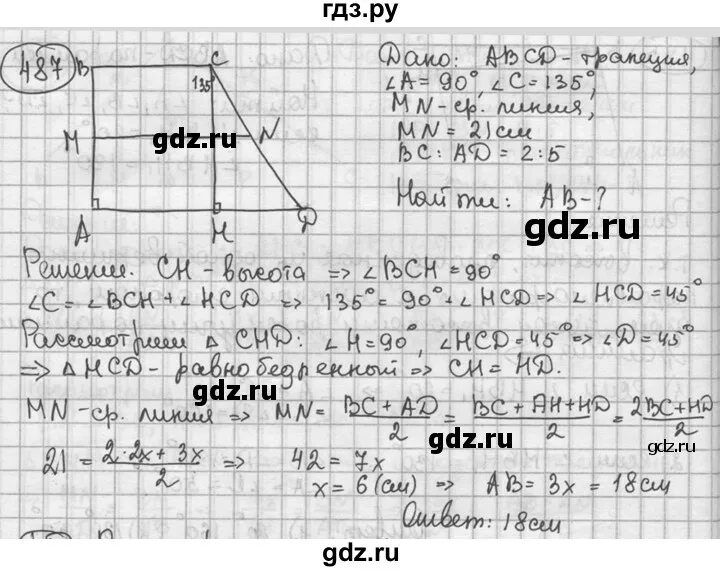 гдз.ру
487
B
C
135°
M
N
A
H
D
Дано: ABCD - трапеция,
∠A = 90°, ∠C = 135°,
MN - ср. линия,
MN = 21 см
BC : AD = 2:5
Найти: AB - ?
gdz.ru
gdz.ru
Решение. CH - высота => ∠BCH = 90°
∠C = ∠BCH + ∠HCD => 135° = 90° + ∠HCD => ∠HCD = 45°
Рассмотрим △ CHD: ∠H = 90°, ∠HCD = 45° => ∠D = 45°
=> △ HCD - равнобедренный => CH = HD.
MN - ср. линия => MN = (BC + AD)/2 = (BC + AH + HD)/2 = (2BC + HD)/2
gdz.ru
gdz.ru
21 = (2·2x + 3x)/2 => 42 = 7x
x = 6 (см) => AB = 3x = 18 см
gdz.ru
Ответ: 18 см
gdz.ru